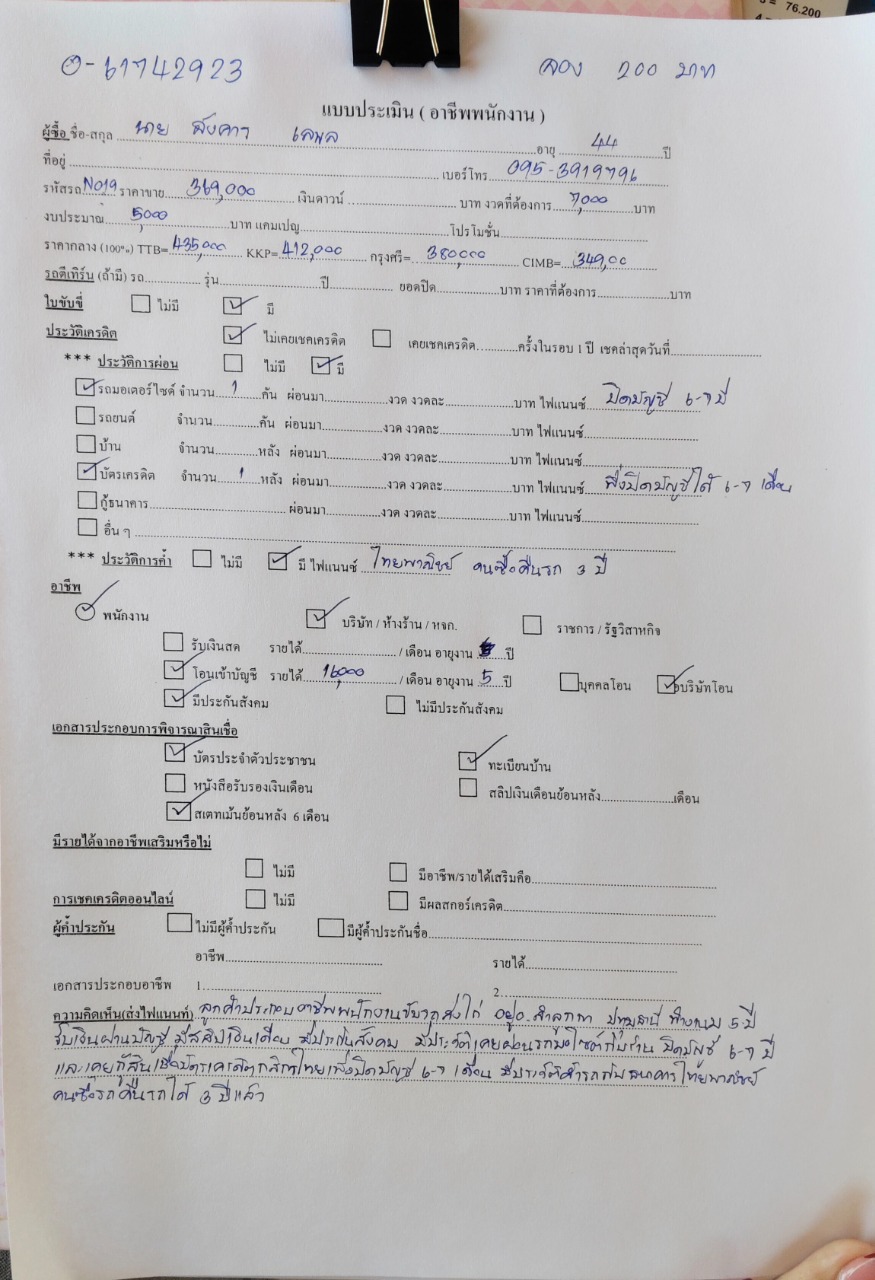 76.200
0-61742923 จอง 200 บาท
แบบประเมิน ( อาชีพพนักงาน )
ผู้ซื้อ ชื่อ-สกุล นาย อายุ 44 ปี
ที่อยู่ เบอร์โทร 095-3919796
รหัสรถ No19 ราคาขาย 369,000 เงินดาวน์ บาท งวดที่ต้องการ 7,000 บาท
งบประมาณ 5,000 บาท แคมเปญ โปรโมชั่น
ราคากลาง (100%) TTB= 435,000 KKP= 412,000 กรุงศรี= 380,000 CIMB= 349,00
รถตีเทิร์น (ถ้ามี) รถ รุ่น ปี ยอดปิด บาท ราคาที่ต้องการ บาท
ใบขับขี่ ไม่มี มี
ประวัติเครดิต ไม่เคยเชคเครดิต เคยเชคเครดิต ครั้งในรอบ 1 ปี เชคล่าสุดวันที่
*** ประวัติการผ่อน ไม่มี มี
รถมอเตอร์ไซด์ จำนวน 1 คัน ผ่อนมา งวด งวดละ บาท ไฟแนนซ์ ปิดบัญชี 6-7 ปี
รถยนต์ จำนวน คัน ผ่อนมา งวด งวดละ บาท ไฟแนนซ์
บ้าน จำนวน หลัง ผ่อนมา งวด งวดละ บาท ไฟแนนซ์
บัตรเครดิต จำนวน 1 หลัง ผ่อนมา งวด งวดละ บาท ไฟแนนซ์ พึ่งปิดบัญชีได้ 6-7 เดือน
กู้ธนาคาร ผ่อนมา งวด งวดละ บาท ไฟแนนซ์
อื่น ๆ
*** ประวัติการค้ำ ไม่มี มี ไฟแนนซ์ ไทยพาณิชย์ คนซื้อคืนรถ 3 ปี
อาชีพ
พนักงาน บริษัท / ห้างร้าน / หจก. ราชการ / รัฐวิสาหกิจ
รับเงินสด รายได้ / เดือน อายุงาน ปี
โอนเข้าบัญชี รายได้ 16,000 / เดือน อายุงาน 5 ปี บุคคลโอน บริษัทโอน
มีประกันสังคม ไม่มีประกันสังคม
เอกสารประกอบการพิจารณาสินเชื่อ
บัตรประจำตัวประชาชน ทะเบียนบ้าน
หนังสือรับรองเงินเดือน สลิปเงินเดือนย้อนหลัง เดือน
สเตทเม้นย้อนหลัง 6 เดือน
มีรายได้จากอาชีพเสริมหรือไม่
ไม่มี มีอาชีพ/รายได้เสริมคือ
การเชคเครดิตออนไลน์ ไม่มี มีผลสกอร์เครดิต
ผู้ค้ำประกัน ไม่มีผู้ค้ำประกัน มีผู้ค้ำประกันชื่อ
อาชีพ รายได้
เอกสารประกอบอาชีพ 1 2
ความคิดเห็น(ส่งไฟแนนท์) ลูกค้าประกอบอาชีพพนักงานขับรถส่งไก่ อยู่อ.ลำลูกกา ปทุมธานี ทำงานมา 5 ปี
รับเงินผ่านบัญชี มีสลิปเงินเดือน มีประกันสังคม มีประวัติเคยผ่อนรถมอไซต์กับร้าน ปิดบัญชี 6-7 ปี
และเคยกู้สินเชื่อบัตรเครดิตกสิกรไทยเพิ่งปิดบัญชี 6-7 เดือน มีประวัติค้ำรถกับธนาคารไทยพาณิชย์
คนซื้อรถคืนรถได้ 3 ปีแล้ว